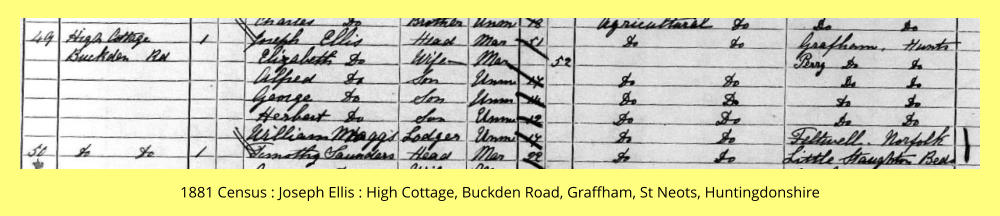 Charles Do Brother Unm 18 Agricultural Do Do Do
49 High Cottage 1 Joseph Ellis Head Mar 51 Do Do Grafham. Hunts
Buckden Rd Elizabeth Do Wife Mar 52 Perry Do Do
Alfred Do Son Unm 17 Do Do Do Do
George Do Son Unm Do Do Do Do
Herbert Do Son Unm 12 Do Do Do Do
William Maggs Lodger Unm 17 Do Do Feltwell. Norfolk
50 Do Do 1 Timothy Saunders Head Mar 29 Do Do Little Staughton Beds
1881 Census : Joseph Ellis : High Cottage, Buckden Road, Graffham, St Neots, Huntingdonshire